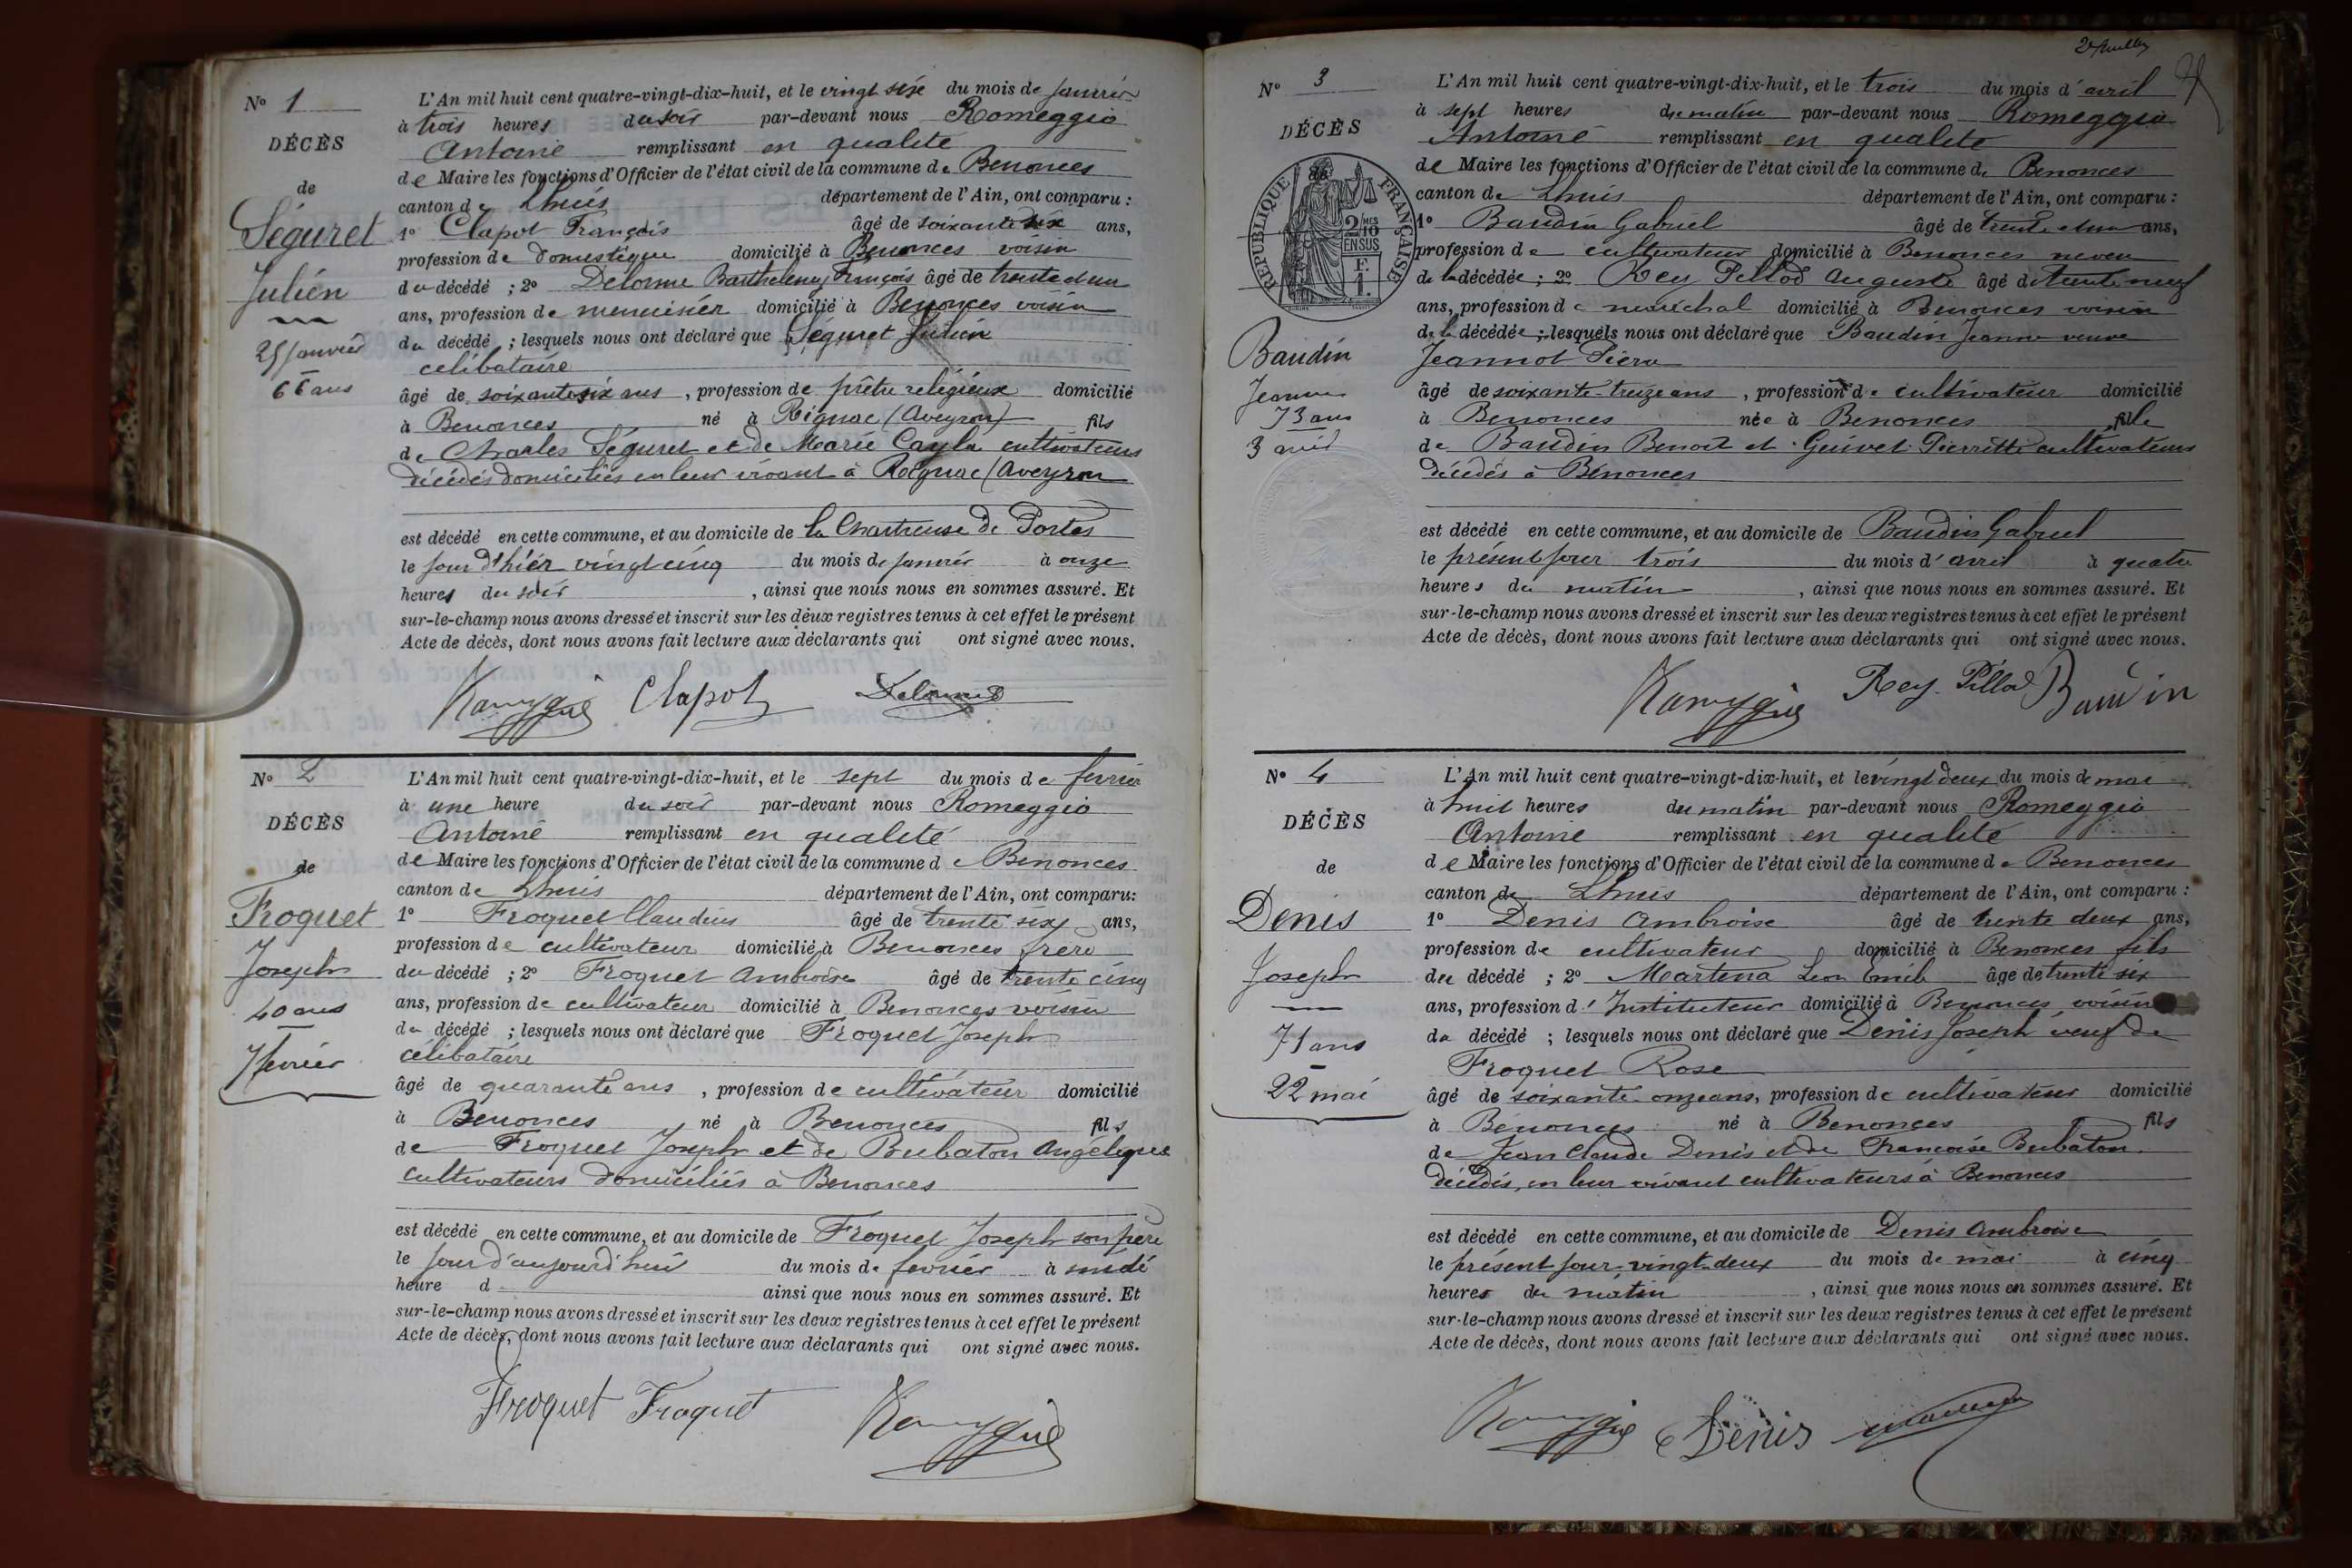 N° 1
DÉCÈS
de
Séguret
Julien
25 janvier
66 ans
L'An mil huit cent quatre-vingt-dix-huit, et le vingt six du mois de janvier
à trois heures du soir par-devant nous Romeggio
Antoine remplissant en qualité
de Maire les fonctions d'Officier de l'état civil de la commune de Benonces
canton de Lhuis département de l'Ain, ont comparu :
1° Clapot François âgé de soixante six ans,
profession de domestique domicilié à Benonces voisin
du décédé ; 2° Delorme Barthelemy François âgé de trente et un
ans, profession de menuisier domicilié à Benonces voisin
du décédé ; lesquels nous ont déclaré que Séguret Julien
célibataire
âgé de soixante six ans , profession de prêtre religieux domicilié
à Benonces né à Rignac (Aveyron) fils
de Charles Séguret et de Marie Cayla cultivateurs
décédés domiciliés en leur vivant à Rignac (Aveyron
est décédé en cette commune, et au domicile de la Chartreuse de Portes
le jour d'hier vingt cinq du mois de janvier à onze
heures du soir , ainsi que nous nous en sommes assuré. Et
sur-le-champ nous avons dressé et inscrit sur les deux registres tenus à cet effet le présent
Acte de décès, dont nous avons fait lecture aux déclarants qui ont signé avec nous.
Clapot Delorme
N° 2
DÉCÈS
de
Froquet
Joseph
40 ans
7 février
L'An mil huit cent quatre-vingt-dix-huit, et le sept du mois de février
à une heure du soir par-devant nous Romeggio
Antoine remplissant en qualité
de Maire les fonctions d'Officier de l'état civil de la commune de Benonces
canton de Lhuis département de l'Ain, ont comparu:
1° Froquet Claudius âgé de trente six ans,
profession de cultivateur domicilié à Benonces frère
du décédé ; 2° Froquet Ambroise âgé de trente cinq
ans, profession de cultivateur domicilié à Benonces voisin
du décédé ; lesquels nous ont déclaré que Froquet Joseph
célibataire
âgé de quarante ans , profession de cultivateur domicilié
à Benonces né à Benonces fils
de Froquet Joseph et de Bubaton Angélique
cultivateurs domiciliés à Benonces
est décédé en cette commune, et au domicile de Froquet Joseph son père
le jour d'aujourd'hui du mois de février à midi
heure d ainsi que nous nous en sommes assuré. Et
sur-le-champ nous avons dressé et inscrit sur les deux registres tenus à cet effet le présent
Acte de décès, dont nous avons fait lecture aux déclarants qui ont signé avec nous.
Froquet Froquet
N° 3
DÉCÈS
RÉPUBLIQUE FRANÇAISE
2/10MES
EN SUS
F.
1.
Baudin
Jeanne
73 ans
3 avril
L'An mil huit cent quatre-vingt-dix-huit, et le trois du mois d'avril
à sept heures du matin par-devant nous Romeggio
Antoine remplissant en qualité
de Maire les fonctions d'Officier de l'état civil de la commune de Benonces
canton de Lhuis département de l'Ain, ont comparu :
1° Baudin Gabriel âgé de trente et un ans,
profession de cultivateur domicilié à Benonces neveu
de la décédée ; 2° Rey Pillod Auguste âgé de trente neuf
ans, profession de maréchal domicilié à Benonces voisin
de la décédée ; lesquels nous ont déclaré que Baudin Jeanne veuve
Jeannot Pierre
âgé de soixante-treize ans , profession de cultivateur domicilié
à Benonces née à Benonces fille
de Baudin Benoit et Guivet Pierrette cultivateurs
décédés à Bénonces
est décédé en cette commune, et au domicile de Baudin Gabriel
le présent jour trois du mois d'avril à quatre
heures du matin , ainsi que nous nous en sommes assuré. Et
sur-le-champ nous avons dressé et inscrit sur les deux registres tenus à cet effet le présent
Acte de décès, dont nous avons fait lecture aux déclarants qui ont signé avec nous.
Rey Pillod Baudin
N° 4
DÉCÈS
de
Denis
Joseph
71 ans
22 mai
L'An mil huit cent quatre-vingt-dix-huit, et le vingt deux du mois de mai
à huit heures du matin par-devant nous Romeggio
Antoine remplissant en qualité
de Maire les fonctions d'Officier de l'état civil de la commune de Benonces
canton de Lhuis département de l'Ain, ont comparu :
1° Denis Ambroise âgé de trente deux ans,
profession de cultivateur domicilié à Benonces fils
du décédé ; 2° Martena Leon Emile âgé de trente six
ans, profession d'Instituteur domicilié à Benonces voisin
du décédé ; lesquels nous ont déclaré que Denis Joseph veuf de
Froquet Rose
âgé de soixante onze ans, profession de cultivateur domicilié
à Benonces né à Benonces fils
de Jean Claude Denis et de Francoise Bubaton
décédés, en leur vivant cultivateurs à Benonces
est décédé en cette commune, et au domicile de Denis Ambroise
le présent jour vingt deux du mois de mai à cinq
heures du matin , ainsi que nous nous en sommes assuré. Et
sur-le-champ nous avons dressé et inscrit sur les deux registres tenus à cet effet le présent
Acte de décès, dont nous avons fait lecture aux déclarants qui ont signé avec nous.
Denis